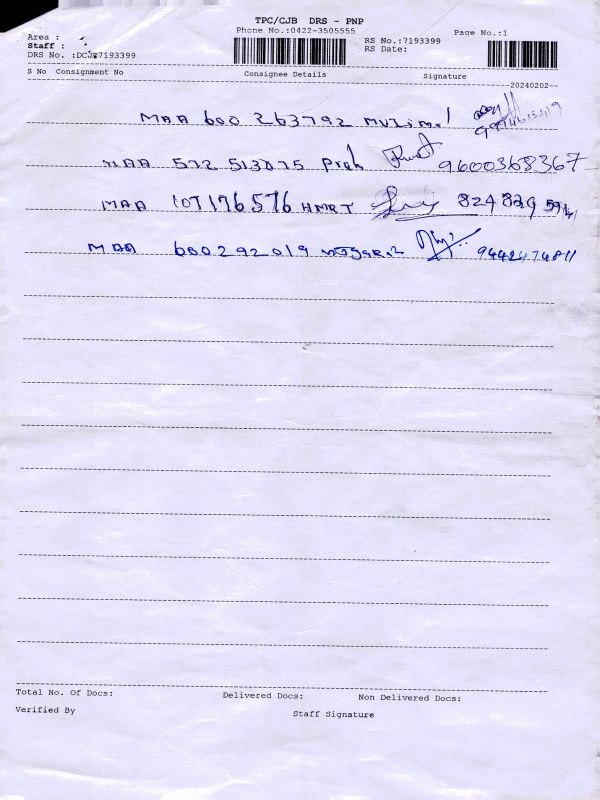 TPC/CJB DRS - PNP
Phone No.:0422-3505555
Page No.:1
Area :
Staff :
RS No.:7193399
RS Date:
DRS No. :DCJ 7193399
S No Consignment No Consignee Details Signature
20240202
MAA 600 263792
MAA 572 513075 9600368367
MAA 107176576 HMRT 824 829
MAA 600292019 9442474811
Total No. Of Docs: Delivered Docs: Non Delivered Docs:
Verified By Staff Signature